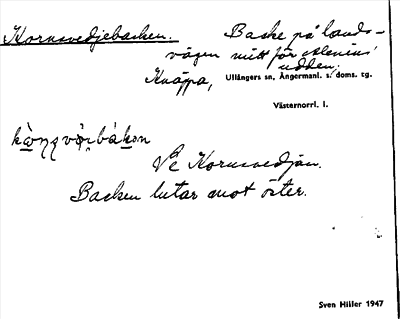 Kornsvedjebacken. Backe på lands-
vägen mitt för Alenius'
udden.
Knäppa, Ullångers sn, Ångermanl. s. doms. tg.
Västernorrl. l.
Vé Kornsvedjan.
Backen lutar mot öster.
Sven Hiller 1947